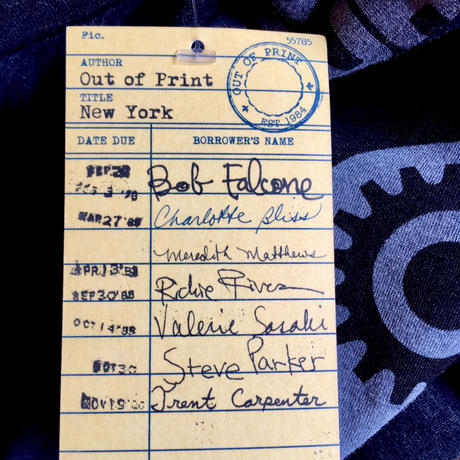 Fic. 55785
AUTHOR
Out of Print
TITLE
New York
OUT OF PRINT
EST. 1984
DATE DUE BORROWER'S NAME
SEP 28 Bob Falcone
Charlotte Bliss
MAR 27 '88
Meredith Matthews
APR 13 '88
SEP 30 '88
OCT 14 '88 Valerie Sasaki
OCT 30 Steve Parker
NOV 19 Trent Carpenter